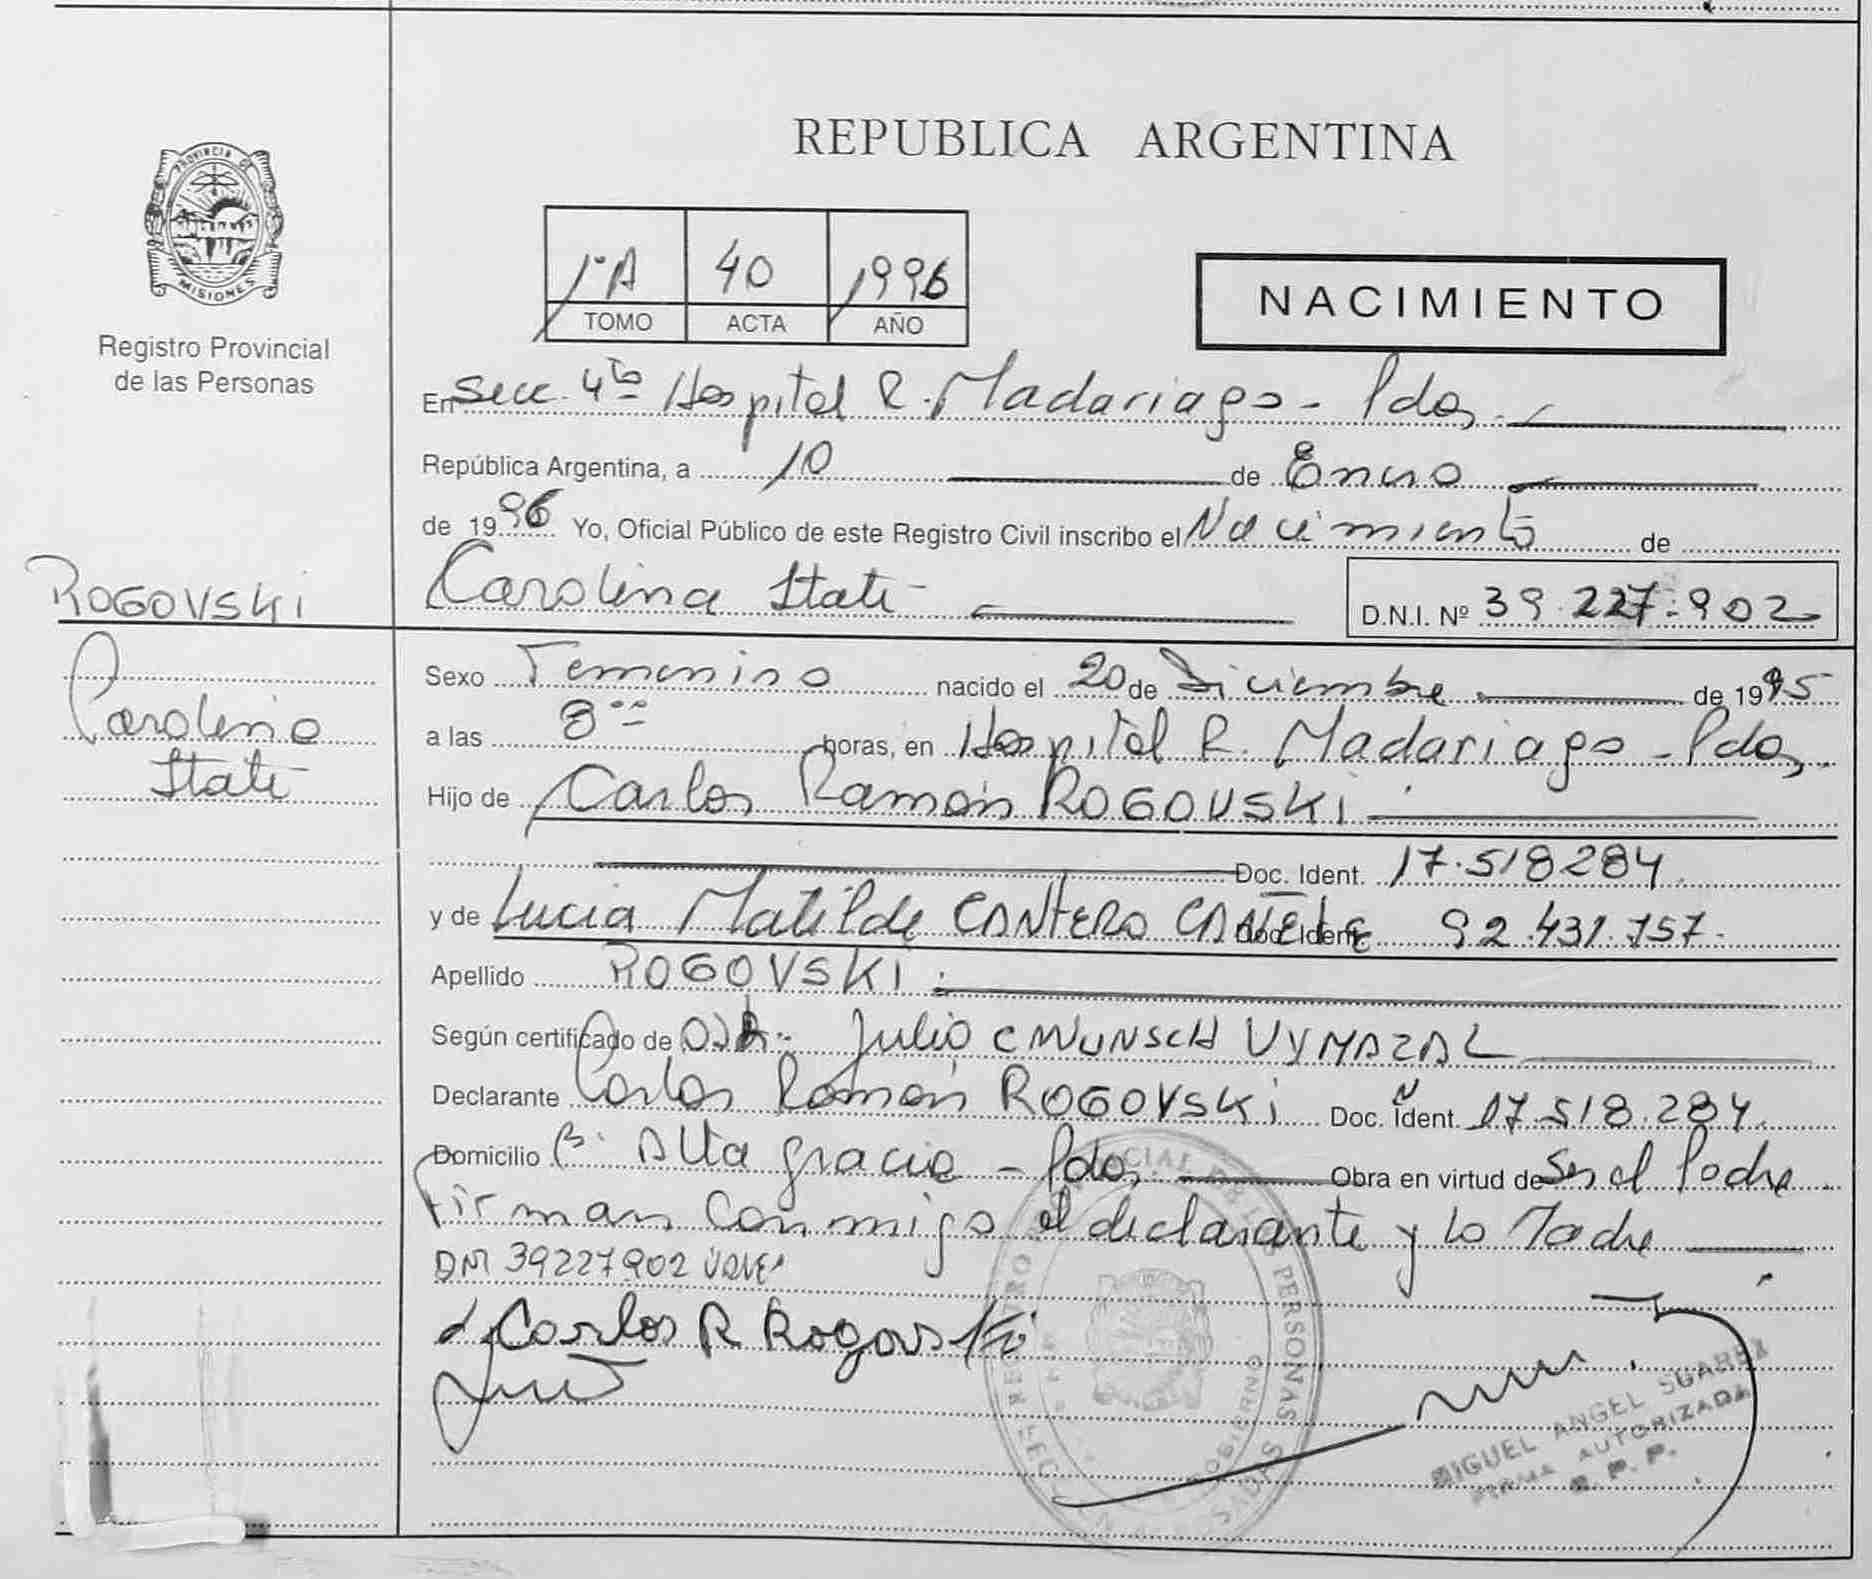 REPUBLICA ARGENTINA
PROVINCIA DE
MISIONES
Registro Provincial
de las Personas
1ºA 40 1996
TOMO ACTA AÑO
NACIMIENTO
En Secc. 4ta Hospital R. Madariaga - Pdas.
República Argentina, a 10 de Enero
de 1996 Yo, Oficial Público de este Registro Civil inscribo el Nacimiento de
ROGOVSKI
Carolina Itatí D.N.I. Nº 39.227.902
Carolina
Itatí
Sexo Femenino nacido el 20 de Diciembre de 1995
a las 8 00 horas, en Hospital R. Madariaga - Pdas.
Hijo de Carlos Ramón ROGOVSKI
Doc. Ident. 17.518284
y de Lucia Matilde CANTERO CAÑETE Doc. Ident. 92.431.757.
Apellido ROGOVSKI
Según certificado de Julio C WUNSCH VYMAZAL
Declarante Carlos Ramón ROGOVSKI Doc. Ident. 17.518.284.
Domicilio Bº Alta gracia - Pdas. Obra en virtud de Ser el Padre
Firman conmigo el declarante y la Madre
DNI 39227902 VALE
Carlos R Rogovski
REGISTRO PROVINCIAL DE LAS PERSONAS
GOBIERNO
MIGUEL ANGEL SUAREZ
FIRMA AUTORIZADA
R. P. P.